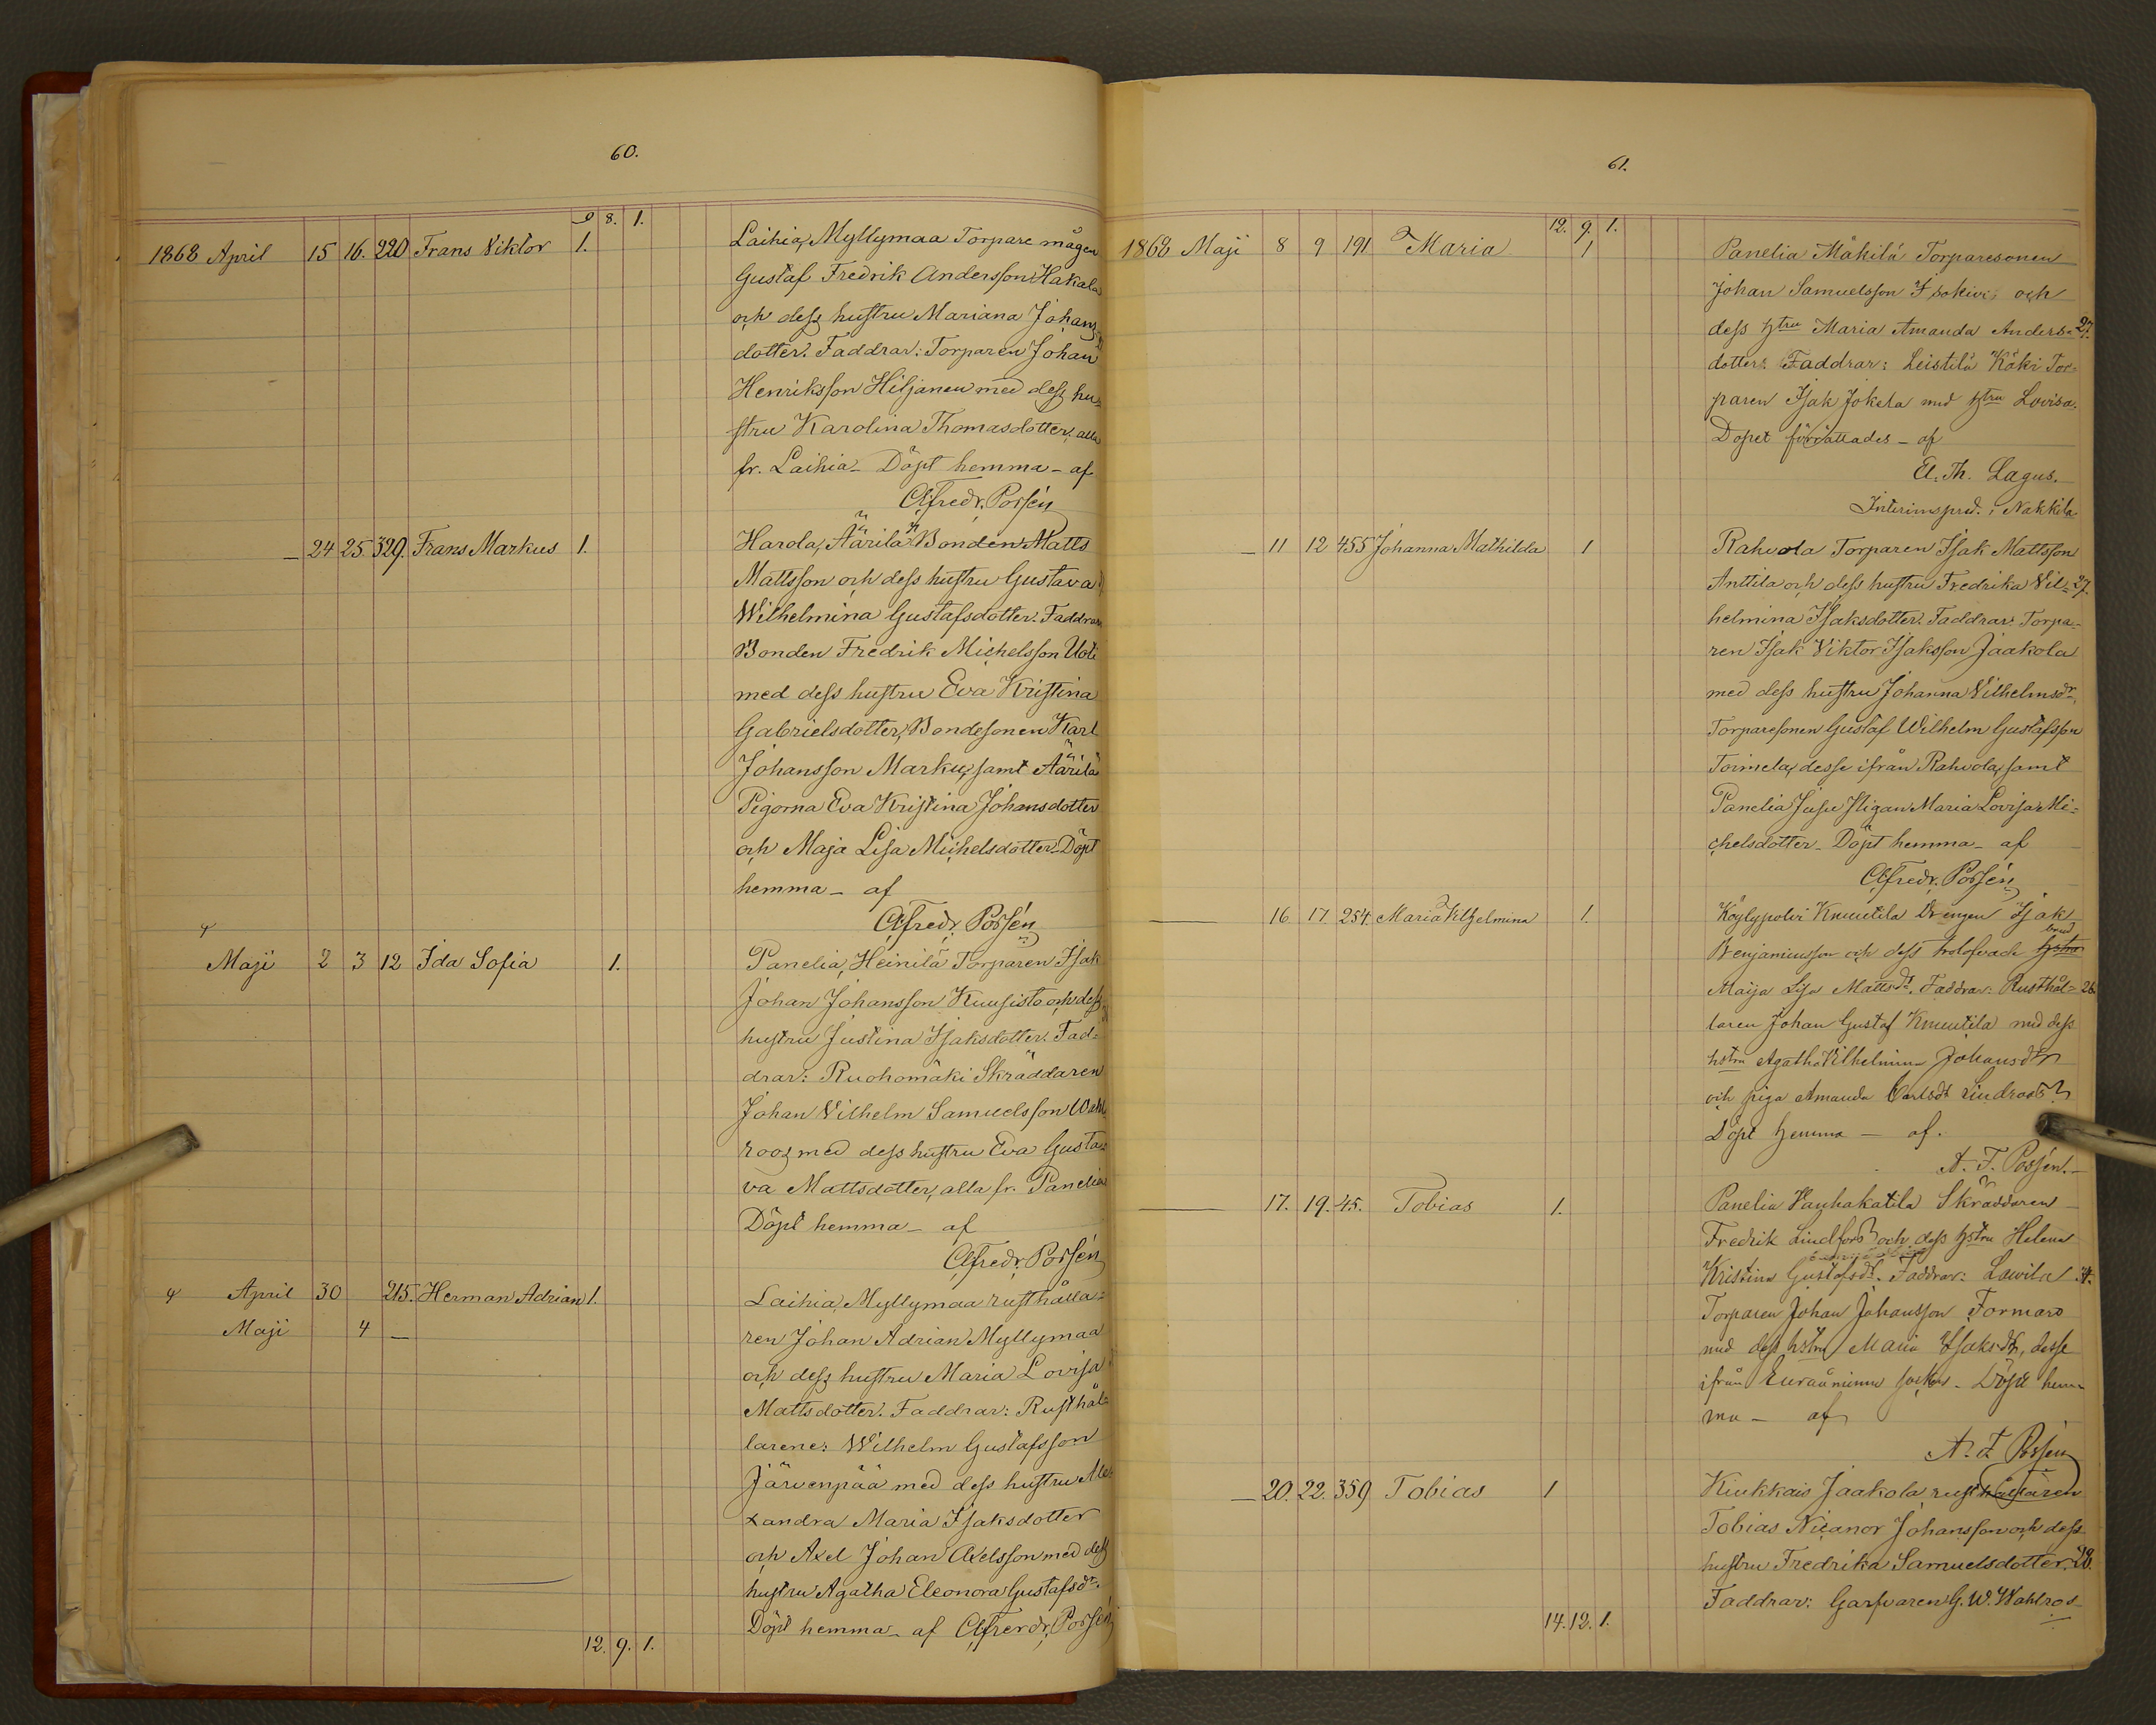 60.
9 8. 1.
1868 April 15 16. 220 Frans Viktor 1. Laihia, Myllymaa Torpare mågen
Gustaf Fredrik Andersson Hakala
och dess hustru Mariana Johans-
dotter. Faddrar: Torparen Johan
Henriksson Hiljanen med dess hu-
stru Karolina Thomasdotter, alla
fr. Laihia - Döpt hemma - af
Alfredr. Possén
— 24 25 329. Frans Markus 1. Harola, Äärilä Bonden Matts
Mattsson och dess hustru Gustava
Wilhelmina Gustafsdotter. Faddrar
Bonden Fredrik Michelsson Uoti
med dess hustru Eva Kristina
Gabrielsdotter, Bondesonen Karl
Johansson Marku, samt Äärilä
Pigorna Eva Kristina Johansdotter
och Maja Lisa Michelsdotter - Döpt
hemma - af
Alfredr. Possén
Maji 2 3 12 Ida Sofia 1. Panelia, Heinilä Torparen Isak
Johan Johansson Kuusisto och dess
hustru Justina Isaksdotter. Fad-
drar: Ruohomäki Skräddaren
Johan Vilhelm Samuelsson Wahl
roos med dess hustru Eva Gusta-
va Mattsdotter, alla fr. Panelia
Döpt hemma - af
Alfredr. Possén
April 30 215. Herman Adrian 1. Laihia, Myllymaa rusthålla-
Maji 4 — ren Johan Adrian Myllymaa
och dess hustru Maria Lovisa
Mattsdotter. Faddrar: Rusthål-
larene: Wilhelm Gustafsson
Järvenpää med dess hustru Ale-
xandra Maria Isaksdotter
och Axel Johan Axelsson med dess
hustru Agatha Eleonora Gustafsdr.
Döpt hemma - af Alfredr. Possén
12. 9. 1.
61.
12. 9. 1.
1868 Maji 8 9 191 Maria 1 Panelia Mäkilä Torparesonen
Johan Samuelsson Isokivi och
dess hstru Maria Amanda Anders- 27.
dotter. Faddrar: Leistilä Köki Tor-
paren Isak Jokela med hstru Lovisa.
Dopet förrättades - af
El. Th. Lagus.
Interimspred. i Nakkila
— 11 12 455 Johanna Mathilda 1 Rahvola Torparen Isak Mattsson
Anttila och dess hustru Fredrika Vil- 27.
helmina Isaksdotter. Faddrar: Torpa-
ren Isak Viktor Isaksson Jaakola
med dess hustru Johanna Vilhelmsdr,
Torparesonen Gustaf Wilhelm Gustafsson
Toimela, desse ifrån Rahvola, samt
Panelia Maria Lovisa Mi-
chelsdotter - Döpt hemma - af
Alfredr. Possén
— 16 17. 254. Maria Vilhelmina 1. Köylypolvi Knuutila Drengen Isak
brud
Benjaminsson och dess trolofvade hstru
Maija Lisa Mattsdr. Faddrar: Rusthål- 28
laren Johan Gustaf Knuutila med dess
hstru Agatha Vilhelmina Johansdr
och piga Amanda Carlsdr Lindroos
Döpt hemma - af.
A. F. Possén.
— 17. 19. 45. Tobias 1. Panelia Vanhakatila Skräddaren
Fredrik Lindfors och dess hstru Helena
Kristina Gustafsdr. Faddrar: Lawila
Torparen Johan Johansson Formars
med dess hstru Maria Isaksdr, desse
ifrån Euraåminne socken - Döpt hem-
ma - af
A. F. Possén
— 20. 22. 359 Tobias 1 Kiukkais Jaakola rusthållaren
Tobias Nicanor Johansson och dess
hustru Fredrika Samuelsdotter. 28.
Faddrar: Garfvaren G. W. Wahlros
14. 12. 1.